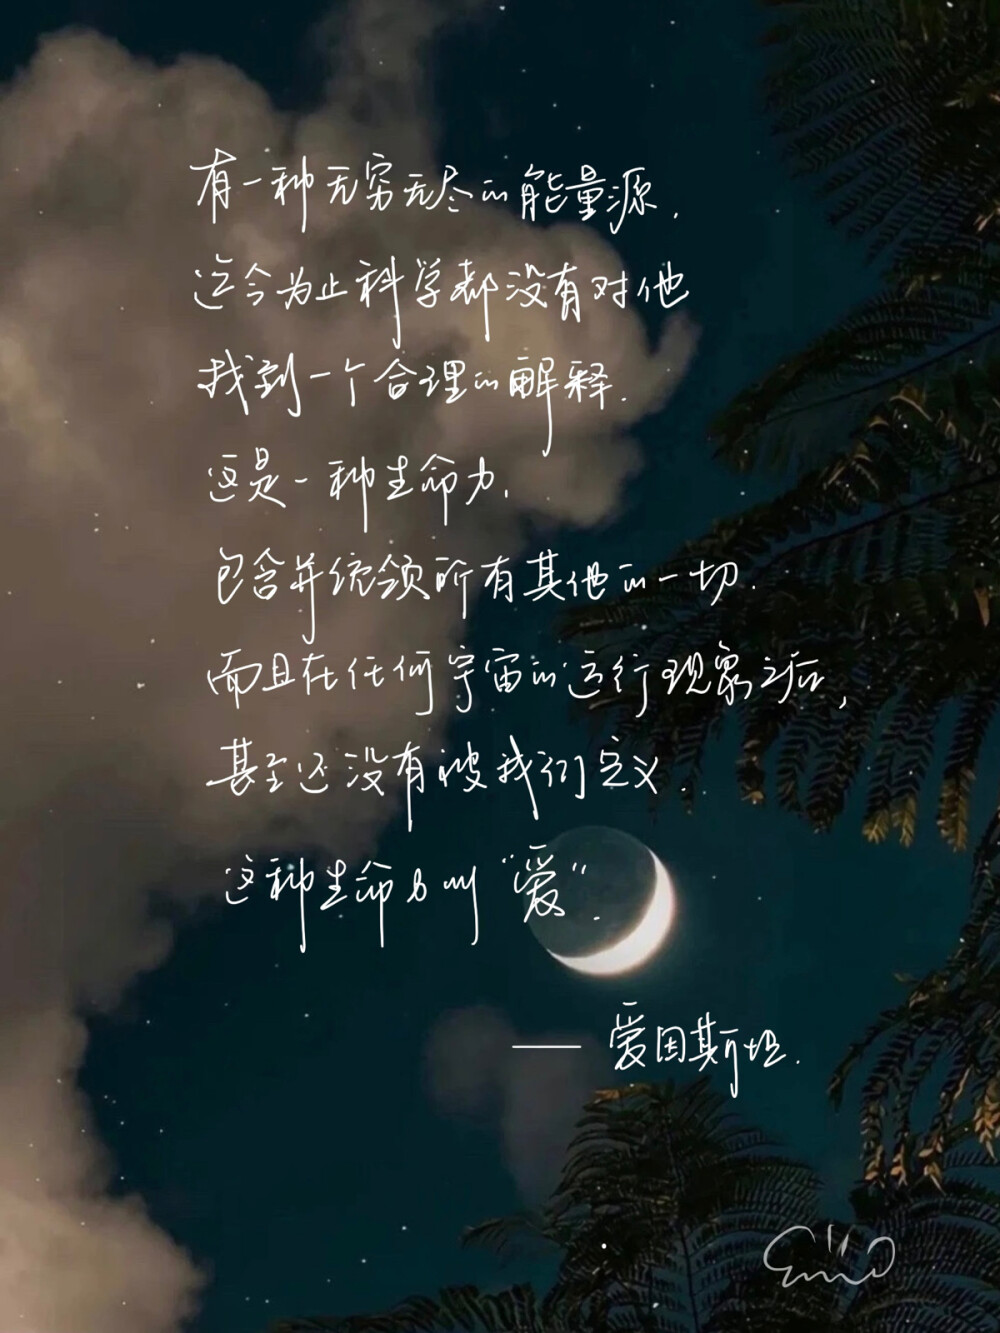 有一种无穷无尽的能量源.
迄今为止科学都没有对他
找到一个合理的解释.
这是一种生命力,
包含并统领所有其他的一切.
而且在任何宇宙的运行现象之后,
甚至还没有被我们定义.
这种生命力叫“爱”.
—— 爱因斯坦.